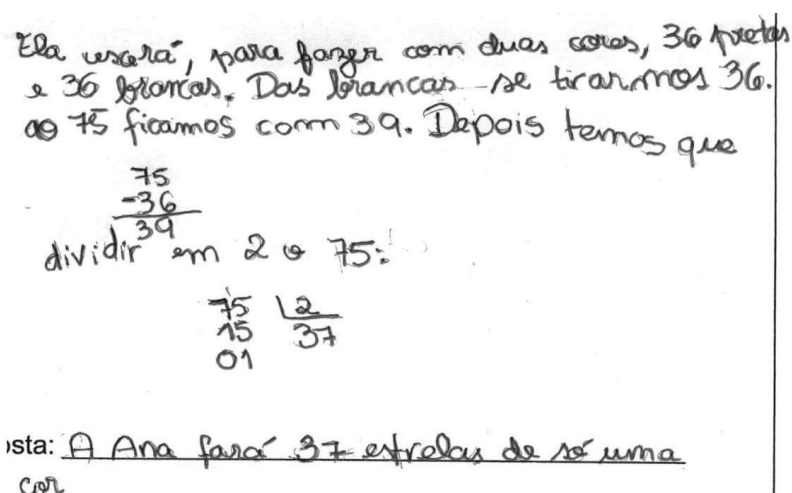 Ela usará, para fazer com duas cores, 36 pretas
e 36 brancas. Das brancas se tirarmos 36.
ao 75 ficamos com 39. Depois temos que
75
-36
39
dividir em 2 o 75:
75 2
15 37
01
osta: A Ana fará 37 estrelas de só uma
cor